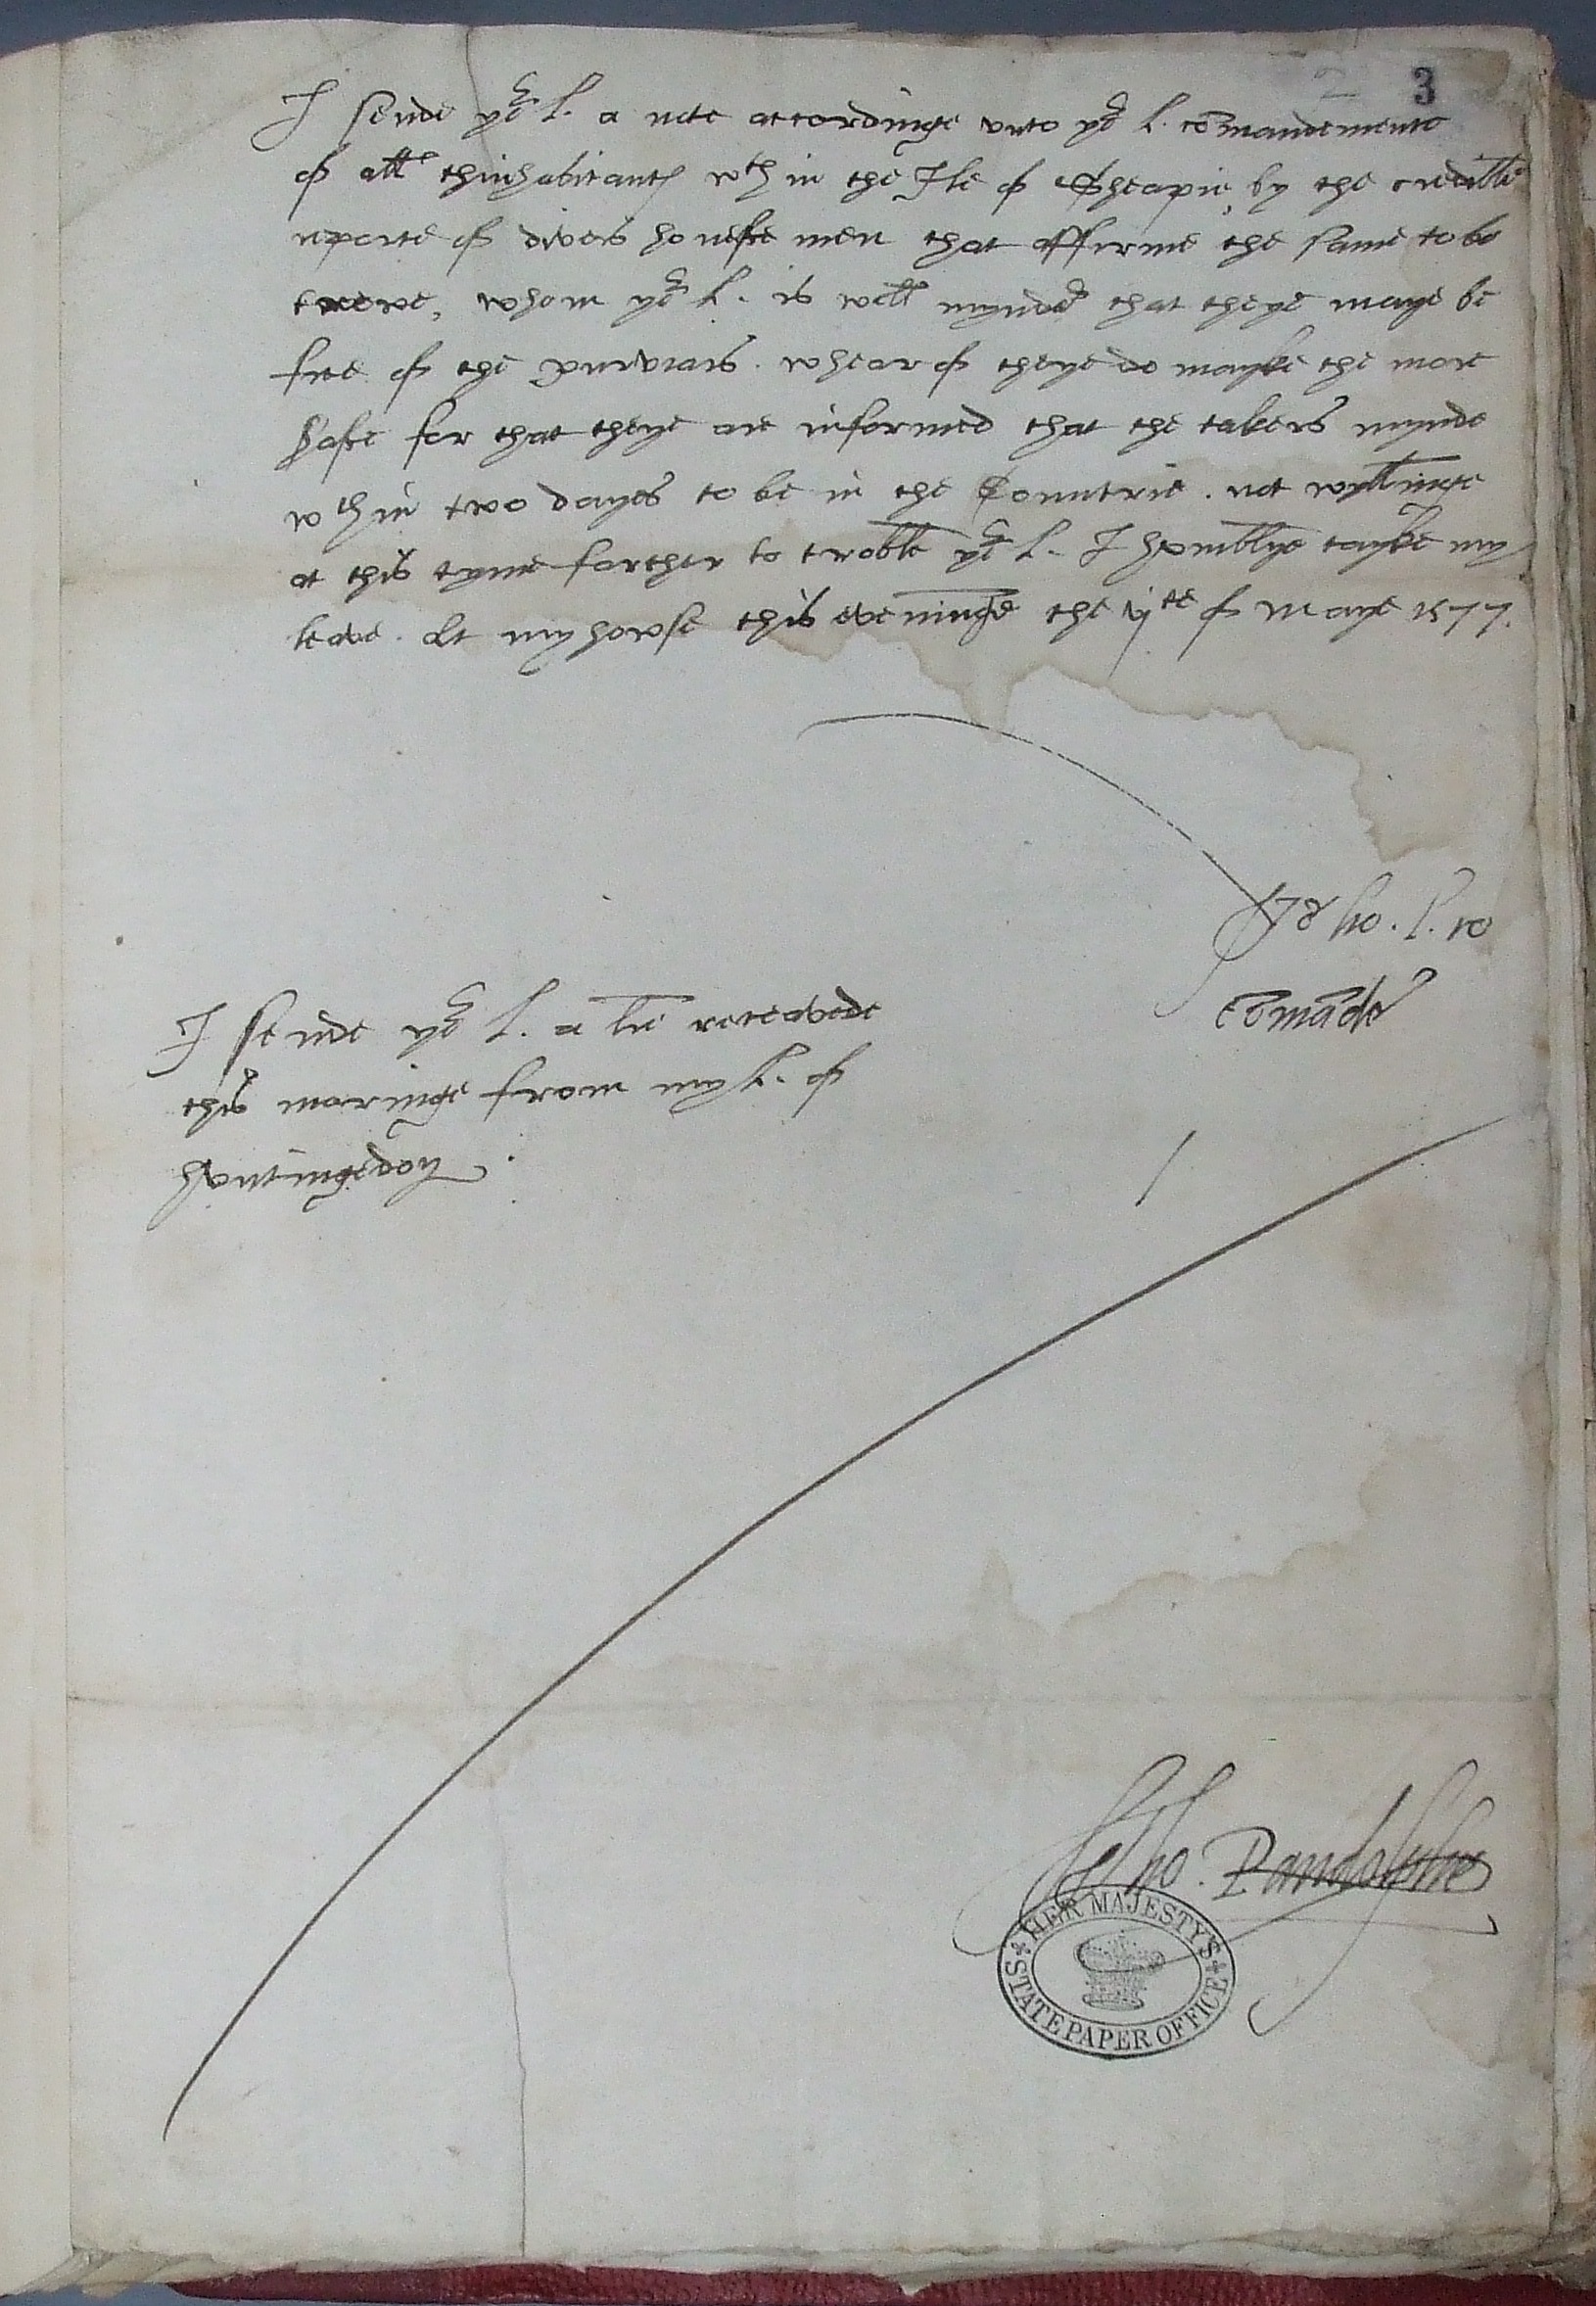 3
I sende yor L. a note accordinge vnto yor L. comandemente
of all thinhabitants wthin the Ile of Sheapie, by the credible
reporte of divers honeste men that afferme the same to be
trewe, whom yor L. is well mynded that theye maye be
free of the purviars. whearof theye do mayke the more
haste for that theye are informed that the takers mynde
wthin two dayes to be in the Countrie. not wyllinge
at this tyme farther to troble yor L. I humblye tayke my
leave. At my howse this eveninge the ijte of Maye 1577.
Yor ho. L. to
comãde
I sende yor L. a lre receavede
this morninge from my L. of
Huntingedon.
Tho. Randolphe
HER MAJESTY'S
STATE PAPER OFFICE